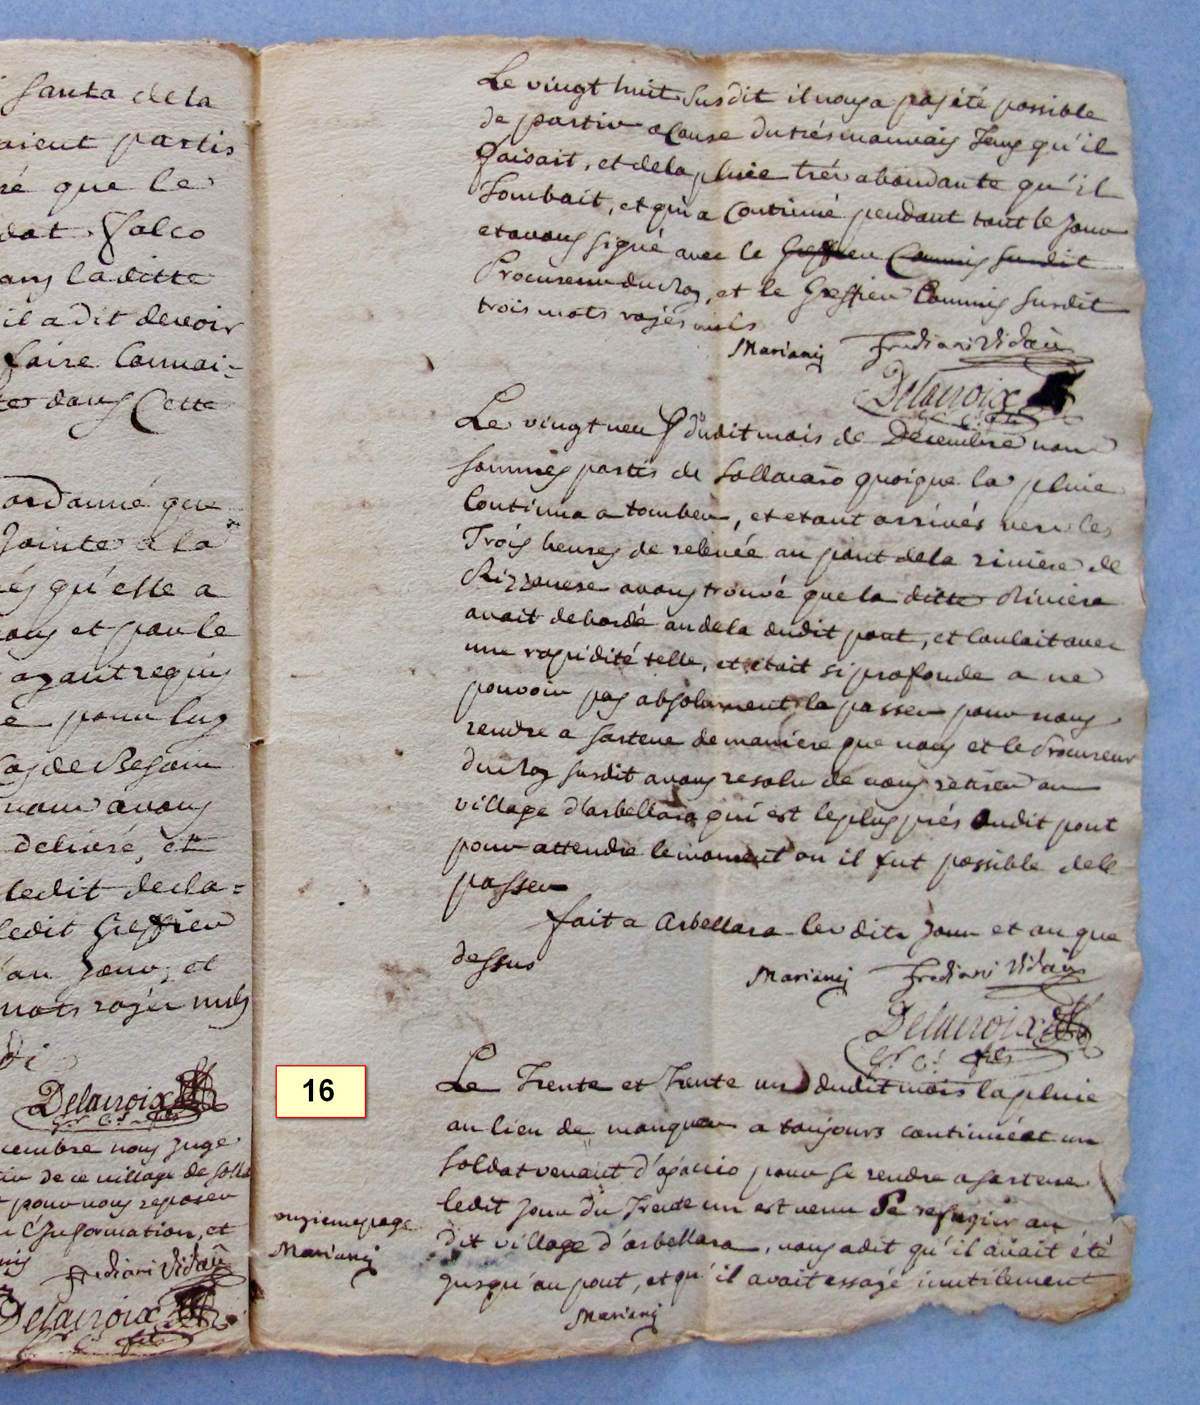 Santa de la
aient partis
ré que le
dat Falco
ans la ditte
il a dit devoir
faire Connai=
ter dans Cette
ordonné que
Jointe a la
és qu'elle a
ous et par le
ayant requis
e pour luy
Cas de Besoin
nous avons
delivré, et
ledit decla=
ledit Greffier
an Jour, et
mots rayés nuls
Delacroix
Gr. C.
cembre nous Juge
de ce village de Solla
pour nous reposer
L'Information, et
Frediani Vidaü
Delacroix
Gr. C.
Le vingt huit Susdit il nous a pas été possible
de partir a Cause du trés mauvais Tems qu'il
faisait, et de la pluie trés abondante qu'il
Tombait, et qui a Continué pendant tout le Jour
et avons signé avec le Greffier Commis susdit
Procureur du Roy, et le Greffier Commis susdit
trois mots rayés nuls
Marianij Frediani Vidaü
Delacroix
Gr. C.
Le vingt neuf dudit mois de Decembre nous
sommes partis de Sollacaro quoique la pluie
Continua a tomber, et etant arrivés vers les
Trois heures de relevée au pont de la riviere de
Rizzanese avons trouvé que la ditte Riviere
avait debordé au dela dudit pont, et Coulait avec
une rapidité telle, et etait si profonde a ne
pouvoir pas absolument la passer pour nous
rendre a Sartene de maniere que nous et le Procureur
du Roy susdit avons resolu de nous retirer au
village d'arbellara qui est le plus prés dudit pont
pour attendre le moment ou il fut possible de le
passer
fait a Arbellara les dits Jour et an que
dessus
Marianij Frediani Vidaü
Delacroix
Gr. C.
Le Trente et Trente un dudit mois la pluie
au lieu de manquer a toujours continué et un
Soldat venant d'ajaccio pour se rendre a Sartene
ledit Jour du Trente un est venu Se refugier au
dit village d'arbellara, nous a dit qu'il avait été
Jusqu'au pont, et qu'il avait essayé inutilement
Marianij
16
onzieme page
Marianij